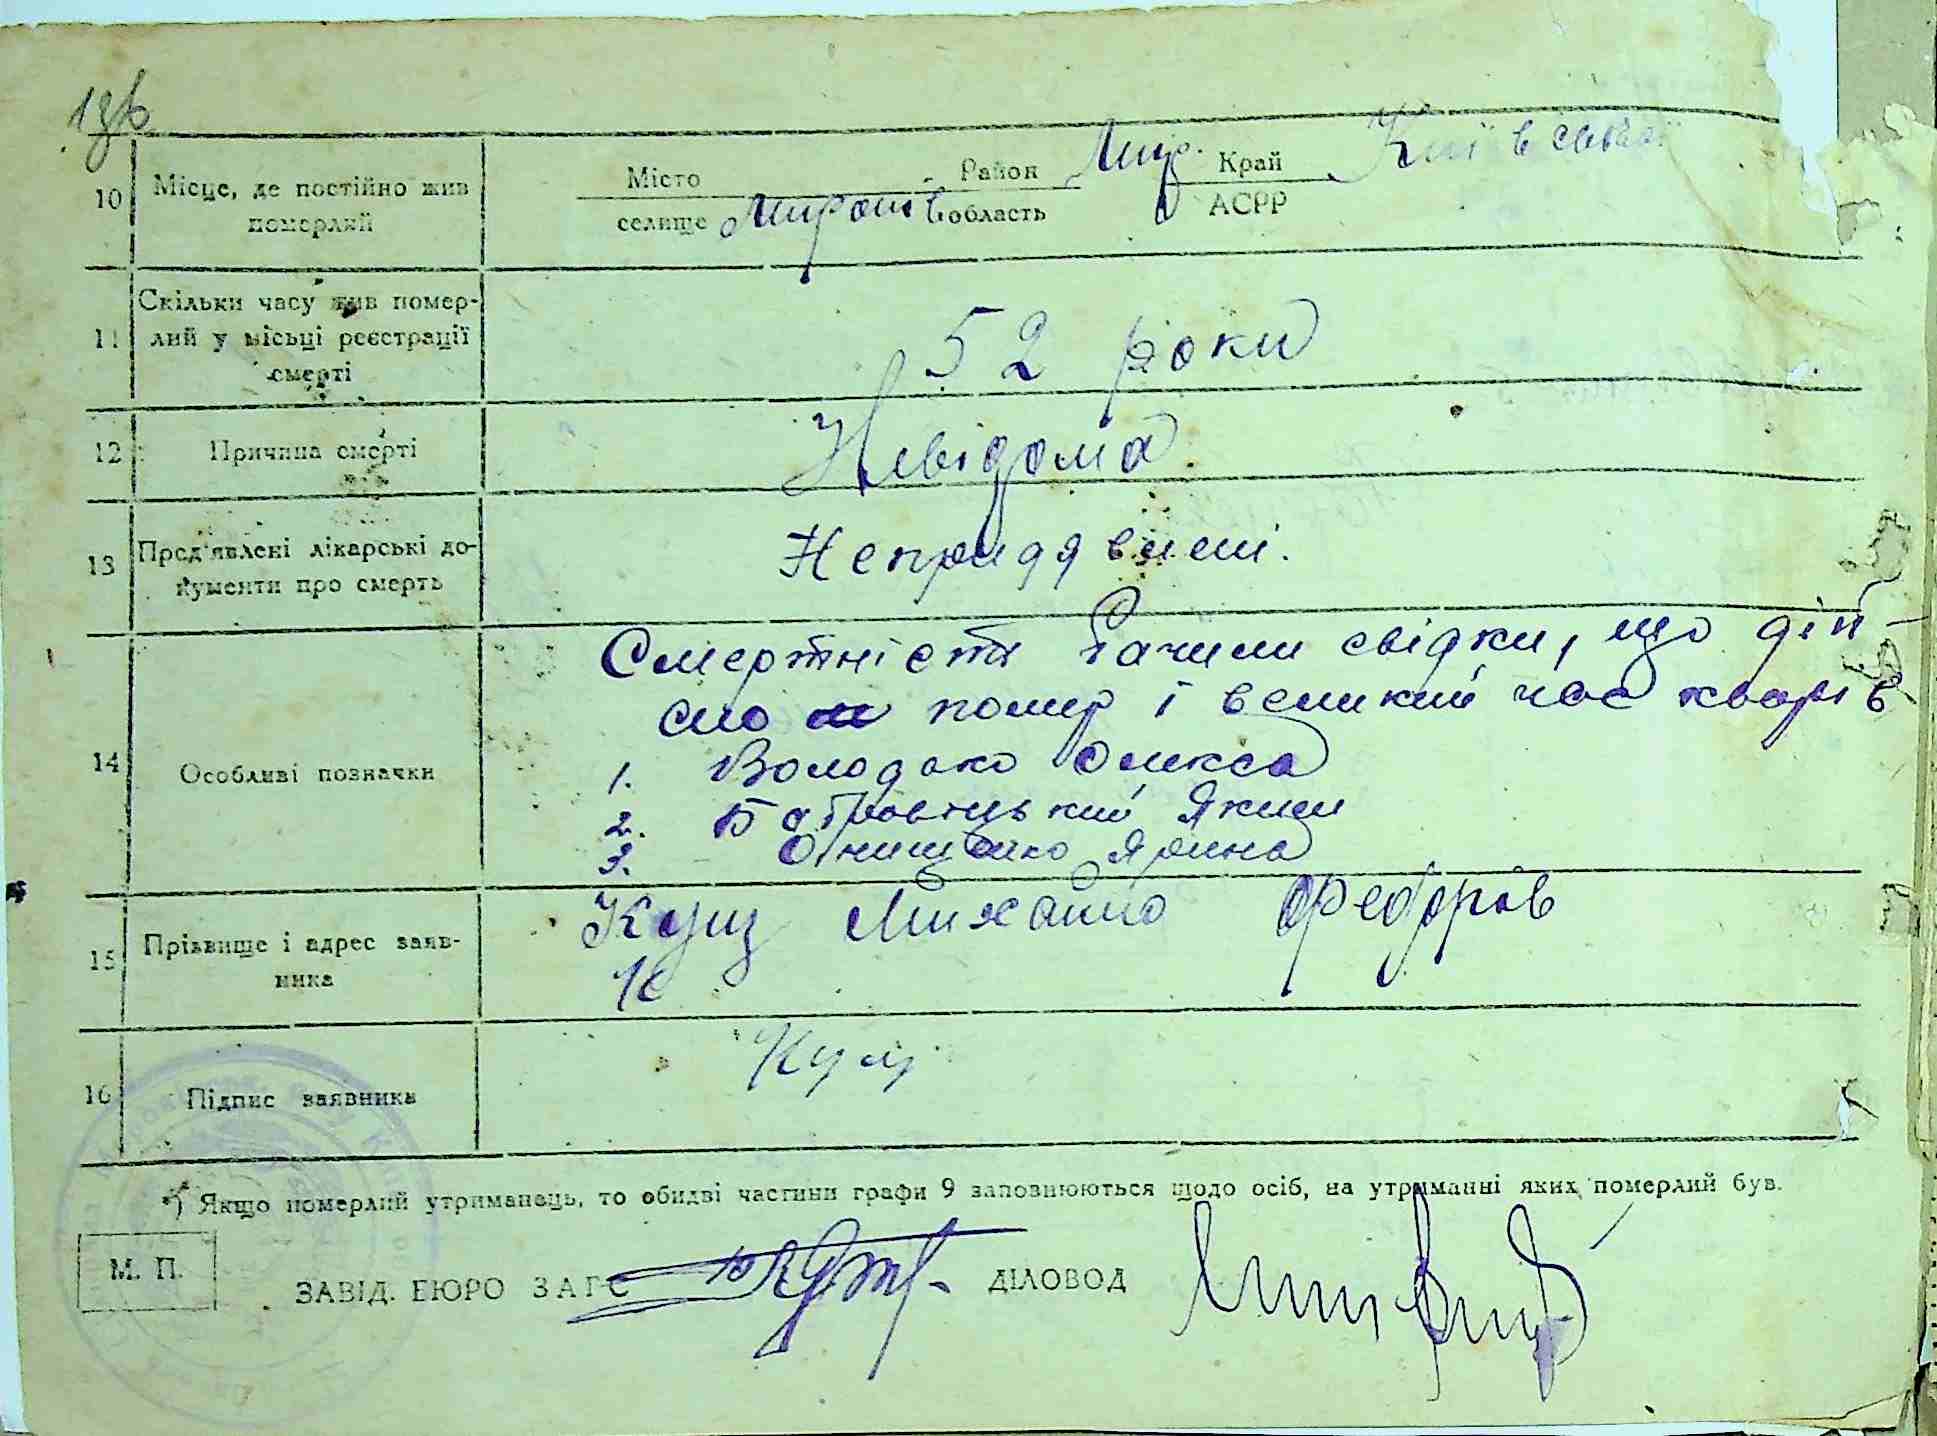 10 Місце, де постійно жив
померлий
Місто Район Мир. Край Київської
селище Миронів область АСРР
11 Скільки часу жив помер-
лий у місьці реєстрації
смерті
52 роки
12 Причина смерті
Невідома
13 Пред'явлені лікарські до-
кументи про смерть
14 Особливі позначки
Смертність бачили свідки, що дій-
сно помер і великий час хворів
1. Володько Олекса
2. Яким
3. Онищенко Ярина
15 Прізвище і адрес заяв-
ника
Куц Михайло Федоров
16 Підпис заявника
Куц
*) Якщо померлий утриманець, то обидві частини графи 9 заповнюються щодо осіб, на утриманні яких померлий був.
М. П.
ЗАВІД. БЮРО ЗАГС ДІЛОВОД